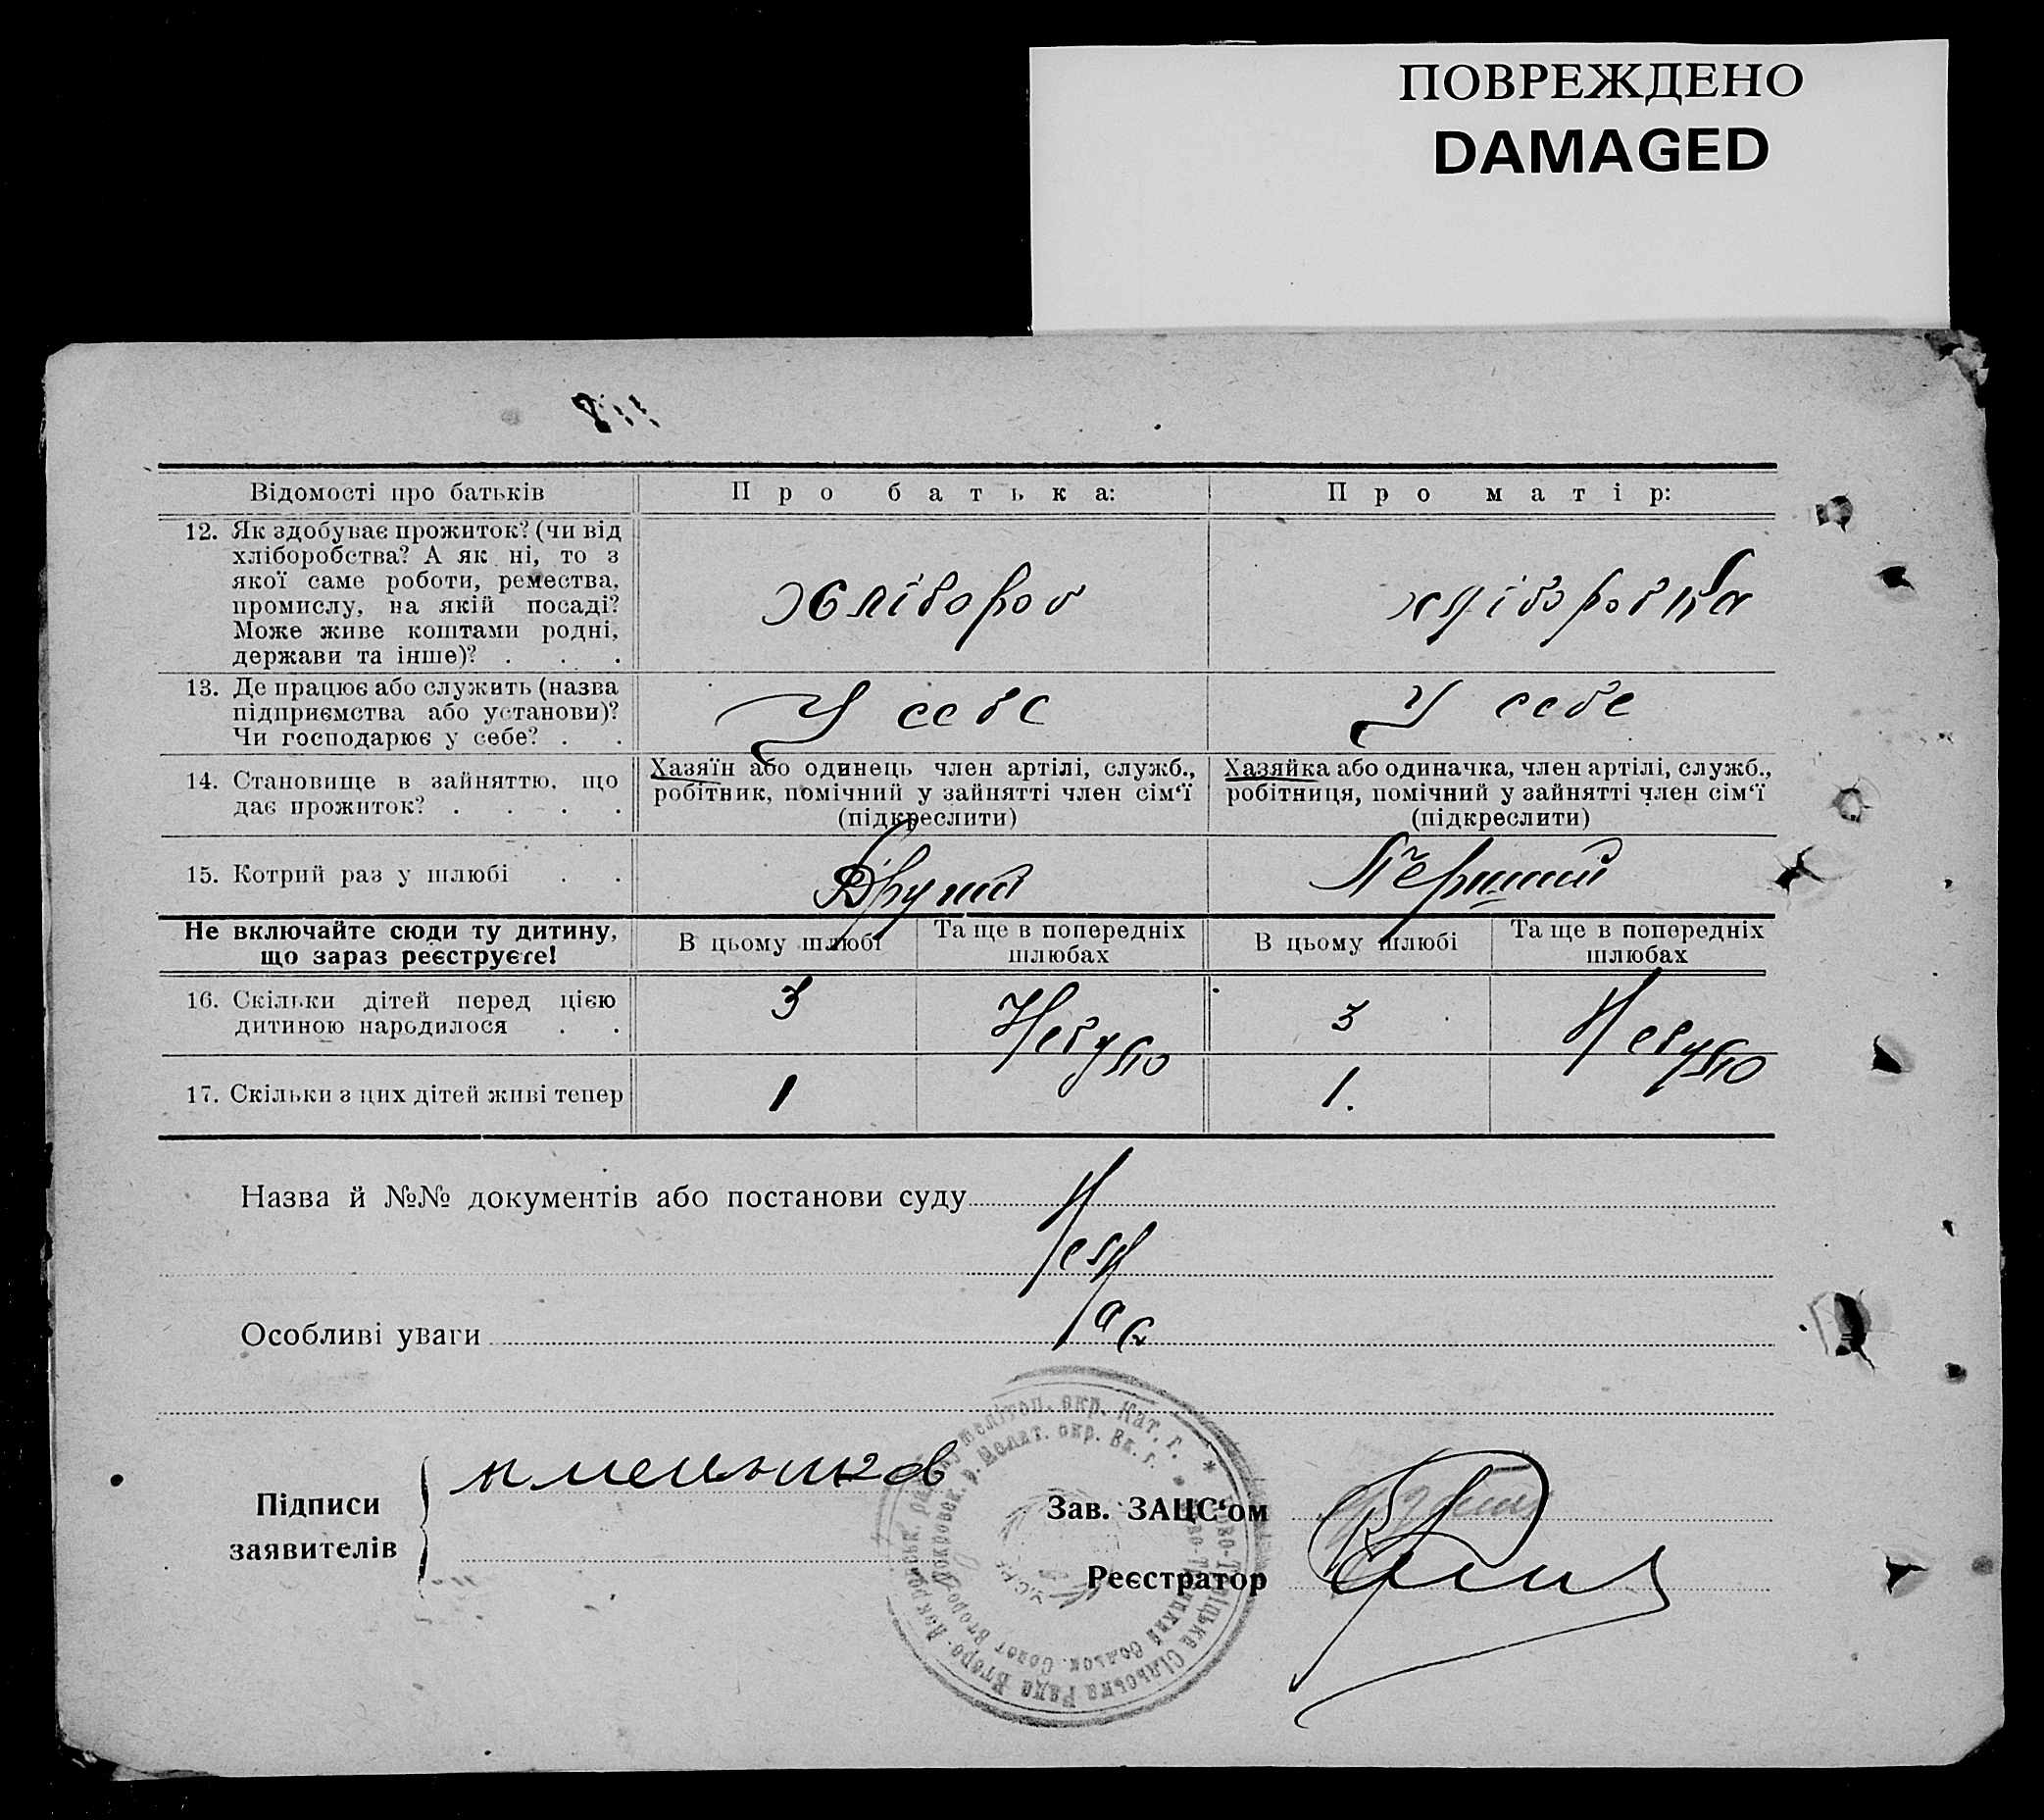 ПОВРЕЖДЕНО
DAMAGED
Відомості про батьків
Про батька:
Про матір:
12. Як здобуває прожиток? (чи від
хліборобства? А як ні, то з
якої саме роботи, ремества,
промислу, на якій посаді?
Може живе коштами родні,
держави та інше)? . . .
хлібороб
хліборобка
13. Де працює або служить (назва
підприємства або установи)?
Чи господарює у себе? . .
У себе
У себе
14. Становище в зайняттю, що
дає прожиток? . . . .
Хазяїн або одинець член артілі, служб.,
робітник, помічний у зайнятті член сім‘ї
(підкреслити)
Хазяйка або одиначка, член артілі, служб.,
робітниця, помічний у зайнятті член сім‘ї
(підкреслити)
15. Котрий раз у шлюбі . .
Другий
Перший
Не включайте сюди ту дитину,
що зараз реєструєте!
В цьому шлюбі
Та ще в попередніх
шлюбах
В цьому шлюбі
Та ще в попередніх
шлюбах
16. Скільки дітей перед цією
дитиною народилося . .
3
Небуло
3
Небуло
17. Скільки з цих дітей живі тепер
1
1.
Назва й №№ документів або постанови суду
Особливі уваги
Підписи
заявителів
Мельников
Зав. ЗАЦС‘ом
Реєстратор
Сільська Рада Второ-
мелітоп. окр. Кат. г.
Мелит. окр. Ек. г.